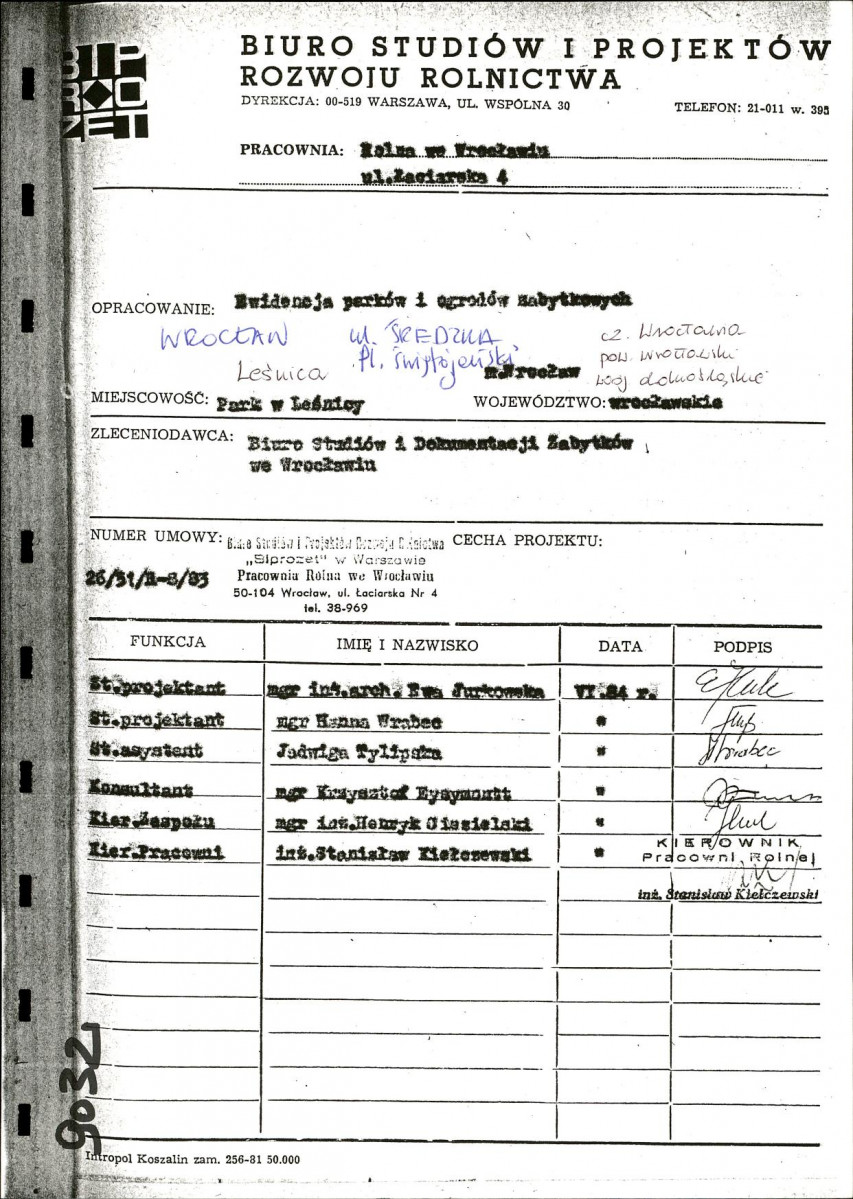 BIPROZET
BIURO STUDIÓW I PROJEKTÓW
ROZWOJU ROLNICTWA
DYREKCJA: 00-519 WARSZAWA, UL. WSPÓLNA 30
TELEFON: 21-011 w. 395
PRACOWNIA: Rolna we Wrocławiu
ul.Łaciarska 4
OPRACOWANIE: Ewidencja parków i ogrodów zabytkowych
WROCŁAW ul. ŚREDZKA cz. Wrocławia
Pl. Świętojański pow. wrocławski
Leśnica m.Wrocław woj dolnośląskie
MIEJSCOWOŚĆ: Park w Leśnicy WOJEWÓDZTWO: wrocławskie
ZLECENIODAWCA: Biuro Studiów i Dokumentacji Zabytków
we Wrocławiu
NUMER UMOWY: Biuro Studiów i Projektów Rozwoju Rolnictwa CECHA PROJEKTU:
„Biprozet" w Warszawie
26/51/R-8/83 Pracownia Rolna we Wrocławiu
50-104 Wrocław, ul. Łaciarska Nr 4
tel. 38-969
FUNKCJA IMIĘ I NAZWISKO DATA PODPIS
St.projektant mgr inż.arch. Ewa Jurkowska VI.84 r.
St.projektant mgr Hanna Wrabec "
St.asystent Jadwiga Tylipska " Wrabec
Konsultant mgr Krzysztof Eysymontt "
Kier.Zespołu mgr inż.Henryk Ciesielski "
Kier.Pracowni inż.Stanisław Kiełczewski " KIEROWNIK
Pracowni Rolnej
inż. Stanisław Kiełczewski
9032
Intropol Koszalin zam. 256-81 50.000